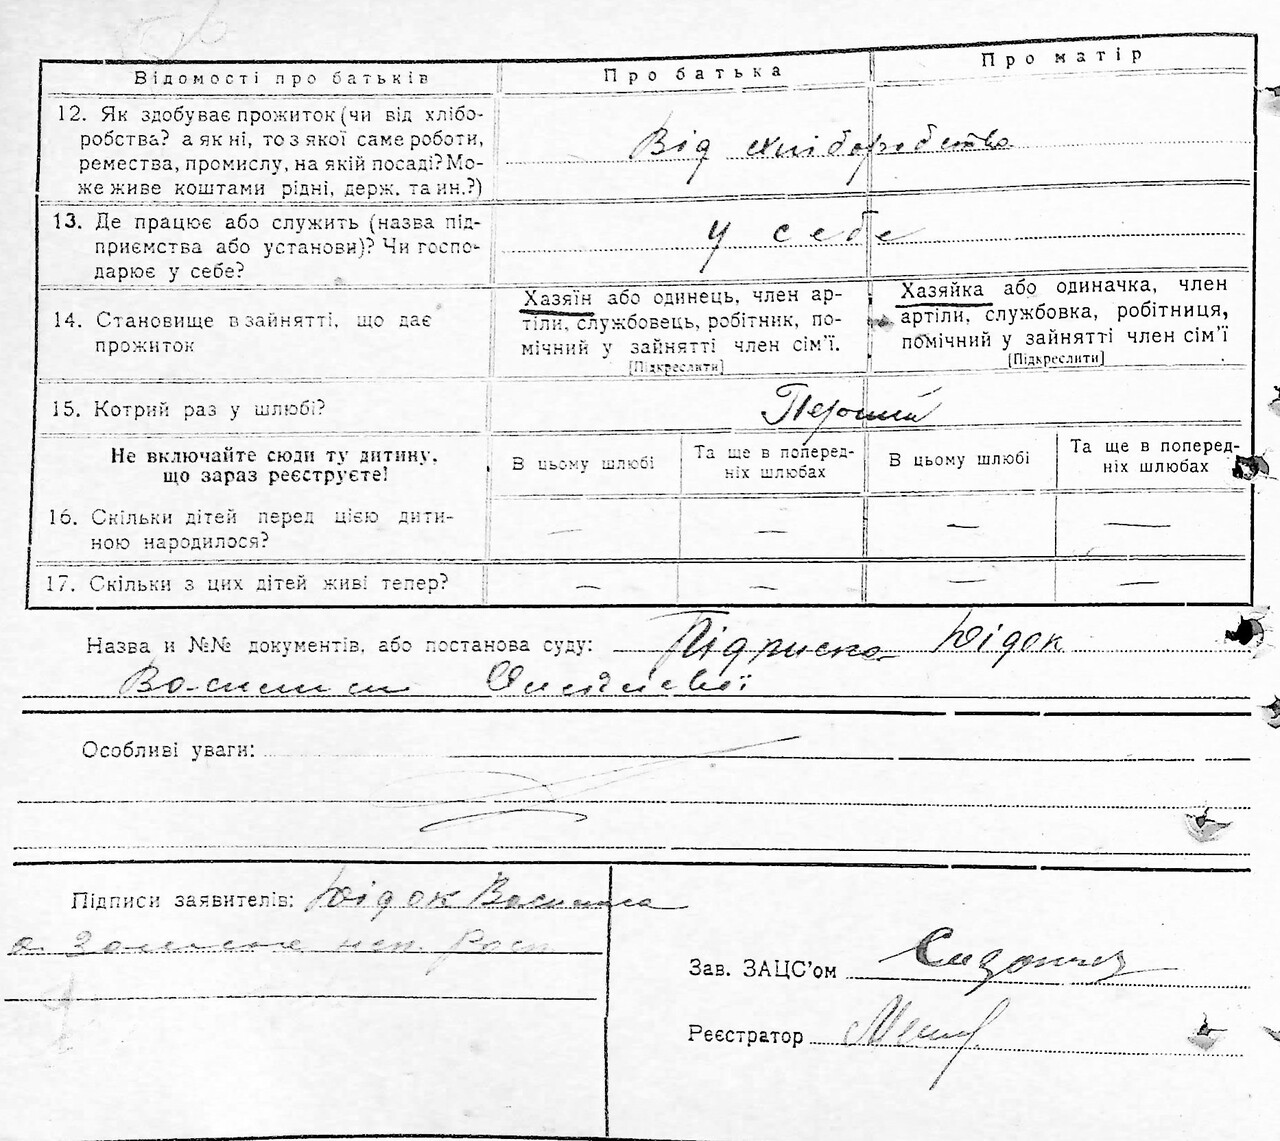 Відомості про батьків
Про батька
Про матір
12. Як здобуває прожиток (чи від хлібо-
робства? а як ні, то з якої саме роботи,
ремества, промислу, на якій посаді? Мо-
же живе коштами рідні, держ. та ин.?)
Від хліборобства
13. Де працює або служить (назва під-
приємства або установи)? Чи госпо-
дарює у себе?
у себе
14. Становище в зайнятті, що дає
прожиток
Хазяїн або одинець, член ар-
тіли, службовець, робітник, по-
мічний у зайнятті член сім'ї.
[Підкреслити]
Хазяйка або одиначка, член
артіли, службовка, робітниця,
помічний у зайнятті член сім'ї
[Підкреслити]
15. Котрий раз у шлюбі?
Перший
Не включайте сюди ту дитину,
що зараз реєструєте!
В цьому шлюбі
Та ще в поперед-
ніх шлюбах
В цьому шлюбі
Та ще в поперед-
ніх шлюбах
16. Скільки дітей перед цією дити-
ною народилося?
— — — —
17. Скільки з цих дітей живі тепер?
— — — —
Назва и №№ документів, або постанова суду: Підписка Дідок
Василини
Особливі уваги:
Підписи заявителів: Дідок Василина
а
Зав. ЗАЦС'ом
Реєстратор